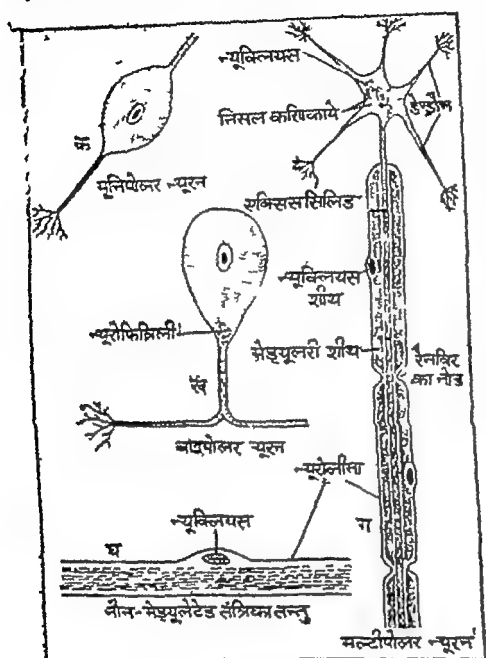 न्यूक्लियस
निसल कणिकाये
डेन्ड्रोन
क
यूनिपोलर न्यूरन
एक्सिस सिलिंड
न्यूक्लियस
शीथ
न्यूरोफिब्रिली
मेड्यूलरी शीथ
रैनवियर
का नोड
ख
बाइपोलर न्यूरन
न्यूरोलीमा
न्यूक्लियस
ग
घ
नॉन-मेड्यूलेटेड तंत्रिका तन्तु
मल्टीपोलर न्यूरन